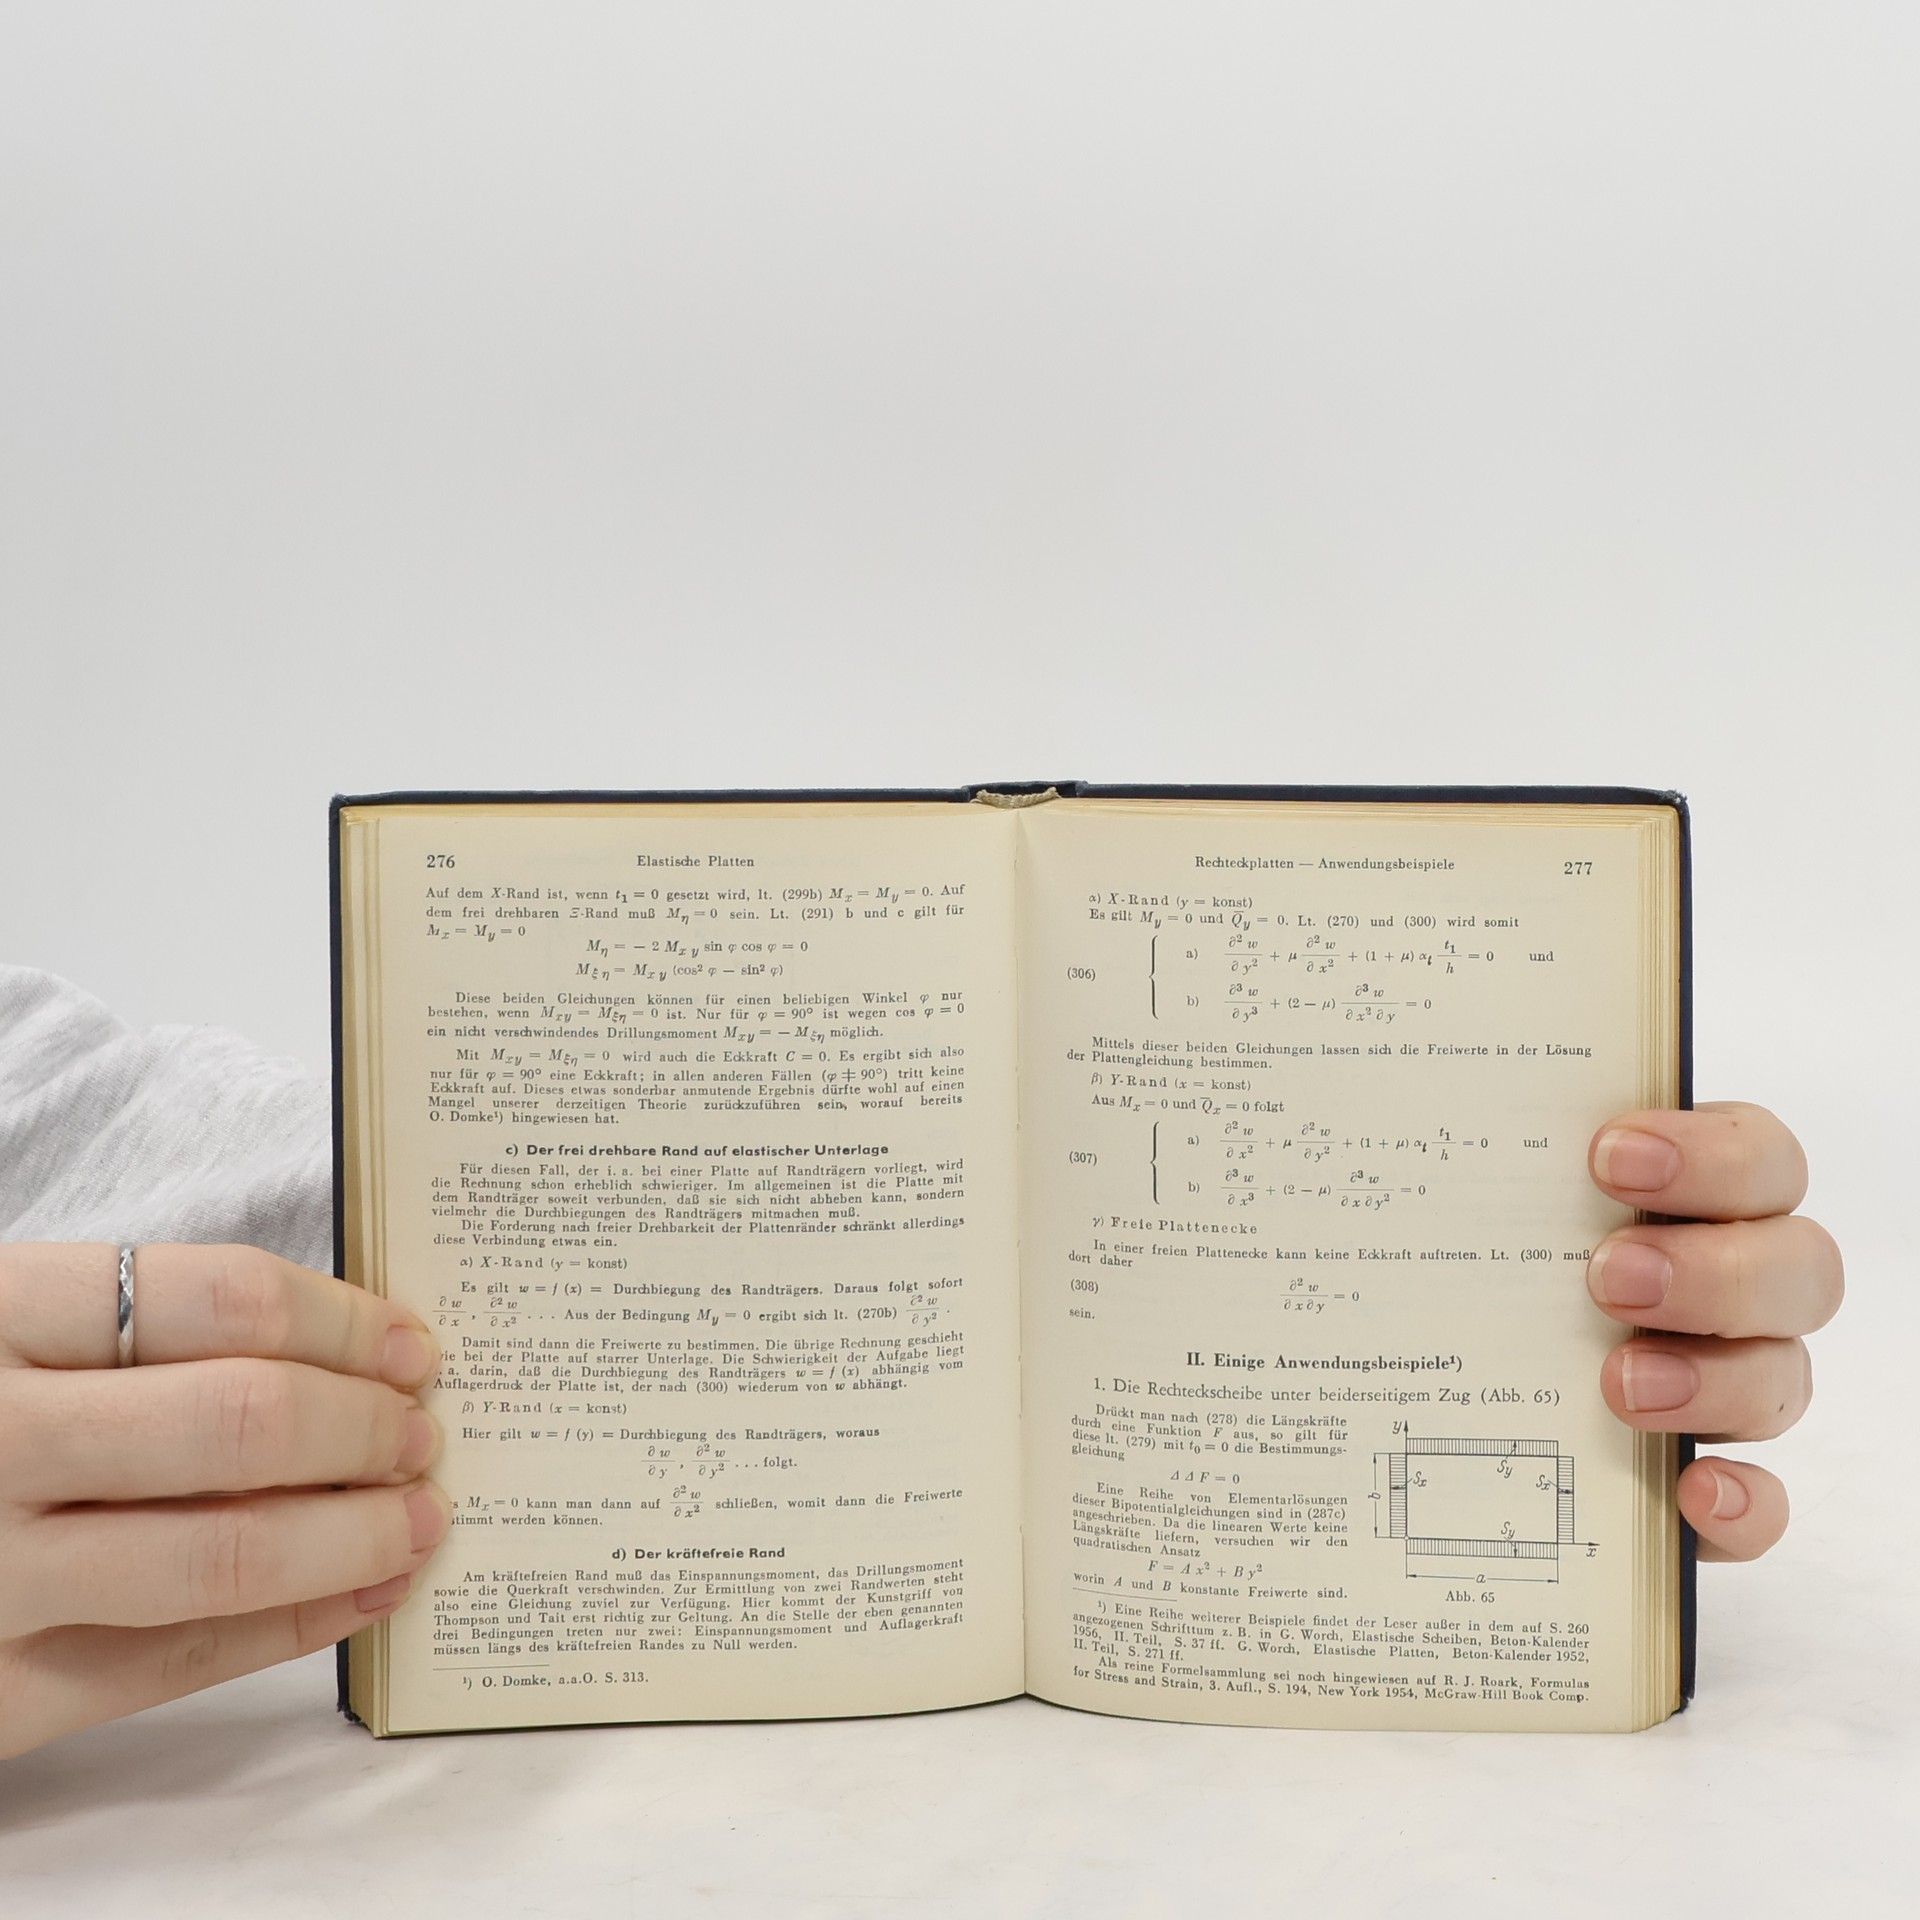 276
Elastische Platten
Auf dem X-Rand ist, wenn t₁ = 0 gesetzt wird, lt. (299b) Mₓ = M_y = 0. Auf
dem frei drehbaren Ξ-Rand muß M_η = 0 sein. Lt. (291) b und c gilt für
Mₓ = M_y = 0
M_η = − 2 M_{x y} sin φ cos φ = 0
M_{ξ η} = M_{x y} (cos² φ − sin² φ)
Diese beiden Gleichungen können für einen beliebigen Winkel φ nur
bestehen, wenn M_{xy} = M_{ξη} = 0 ist. Nur für φ = 90° ist wegen cos φ = 0
ein nicht verschwindendes Drillungsmoment M_{xy} = − M_{ξη} möglich.
Mit M_{xy} = M_{ξη} = 0 wird auch die Eckkraft C = 0. Es ergibt sich also
nur für φ = 90° eine Eckkraft; in allen anderen Fällen (φ ≠ 90°) tritt keine
Eckkraft auf. Dieses etwas sonderbar anmutende Ergebnis dürfte wohl auf einen
Mangel unserer derzeitigen Theorie zurückzuführen sein, worauf bereits
O. Domke¹) hingewiesen hat.
c) Der frei drehbare Rand auf elastischer Unterlage
Für diesen Fall, der i. a. bei einer Platte auf Randträgern vorliegt, wird
die Rechnung schon erheblich schwieriger. Im allgemeinen ist die Platte mit
dem Randträger soweit verbunden, daß sie sich nicht abheben kann, sondern
vielmehr die Durchbiegungen des Randträgers mitmachen muß.
Die Forderung nach freier Drehbarkeit der Plattenränder schränkt allerdings
diese Verbindung etwas ein.
α) X-Rand (y = konst)
Es gilt w = f (x) = Durchbiegung des Randträgers. Daraus folgt sofort
∂ w / ∂ x , ∂² w / ∂ x² . . . Aus der Bedingung M_y = 0 ergibt sich lt. (270b) ∂² w / ∂ y² .
Damit sind dann die Freiwerte zu bestimmen. Die übrige Rechnung geschieht
wie bei der Platte auf starrer Unterlage. Die Schwierigkeit der Aufgabe liegt
. a. darin, daß die Durchbiegung des Randträgers w = f (x) abhängig vom
Auflagerdruck der Platte ist, der nach (300) wiederum von w abhängt.
β) Y-Rand (x = konst)
Hier gilt w = f (y) = Durchbiegung des Randträgers, woraus
∂ w / ∂ y , ∂² w / ∂ y² . . . folgt.
s Mₓ = 0 kann man dann auf ∂² w / ∂ x² schließen, womit dann die Freiwerte
stimmt werden können.
d) Der kräftefreie Rand
Am kräftefreien Rand muß das Einspannungsmoment, das Drillungsmoment
sowie die Querkraft verschwinden. Zur Ermittlung von zwei Randwerten steht
also eine Gleichung zuviel zur Verfügung. Hier kommt der Kunstgriff von
Thompson und Tait erst richtig zur Geltung. An die Stelle der eben genannten
drei Bedingungen treten nur zwei: Einspannungsmoment und Auflagerkraft
müssen längs des kräftefreien Randes zu Null werden.
¹) O. Domke, a.a.O. S. 313.
Rechteckplatten — Anwendungsbeispiele
277
α) X-Rand (y = konst)
Es gilt M_y = 0 und Q̄_y = 0. Lt. (270) und (300) wird somit
(306)
a) ∂² w / ∂ y² + μ ∂² w / ∂ x² + (1 + μ) α_t t₁ / h = 0 und
b) ∂³ w / ∂ y³ + (2 − μ) ∂³ w / ∂ x² ∂ y = 0
Mittels dieser beiden Gleichungen lassen sich die Freiwerte in der Lösung
der Plattengleichung bestimmen.
β) Y-Rand (x = konst)
Aus Mₓ = 0 und Q̄ₓ = 0 folgt
(307)
a) ∂² w / ∂ x² + μ ∂² w / ∂ y² + (1 + μ) α_t t₁ / h = 0 und
b) ∂³ w / ∂ x³ + (2 − μ) ∂³ w / ∂ x ∂ y² = 0
γ) Freie Plattenecke
In einer freien Plattenecke kann keine Eckkraft auftreten. Lt. (300) muß
dort daher
(308) ∂² w / ∂ x ∂ y = 0
sein.
II. Einige Anwendungsbeispiele¹)
1. Die Rechteckscheibe unter beiderseitigem Zug (Abb. 65)
Drückt man nach (278) die Längskräfte
durch eine Funktion F aus, so gilt für
diese lt. (279) mit t₀ = 0 die Bestimmungs-
gleichung
Δ Δ F = 0
Eine Reihe von Elementarlösungen
dieser Bipotentialgleichungen sind in (287c)
angeschrieben. Da die linearen Werte keine
Längskräfte liefern, versuchen wir den
quadratischen Ansatz
F = A x² + B y²
worin A und B konstante Freiwerte sind.
y
S_y
Sₓ
Sₓ
b
S_y
x
a
Abb. 65
¹) Eine Reihe weiterer Beispiele findet der Leser außer in dem auf S. 260
angezogenen Schrifttum z. B. in G. Worch, Elastische Scheiben, Beton-Kalender
1956, II. Teil, S. 37 ff. G. Worch, Elastische Platten, Beton-Kalender 1952,
II. Teil, S. 271 ff.
Als reine Formelsammlung sei noch hingewiesen auf R. J. Roark, Formulas
for Stress and Strain, 3. Aufl., S. 194, New York 1954, McGraw-Hill Book Comp.